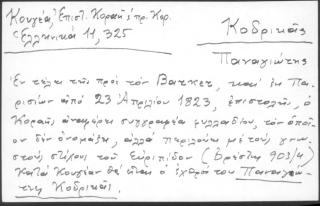 Κουγέα, Ἐπιστ. Κοραῆ πρ. Κοδρ.
Ἑλληνικά 11, 325
Κοδρικᾶς
Παναγιώτης
Ἐν τέλει τῆς πρός τὸν Βάτκετ, καί ἐκ Πα-
ρισίων ἀπό 23 Ἀπριλίου 1823, ἐπιστολῆς, ὁ
Κοραῆς ἀναφέρει συγγραφέα φυλλαδίου, τὸν ὁποῖον
δέν ὀνομάζει, ἀλλά περιλούει μέ τούς γνω-
στούς στίχους τοῦ Εὐριπίδου (Ὀρέστης 903/4)
Κατά Κουγέαν θά εἶναι ὁ ἐχθρός του Παναγιώ-
της Κοδρικᾶς.